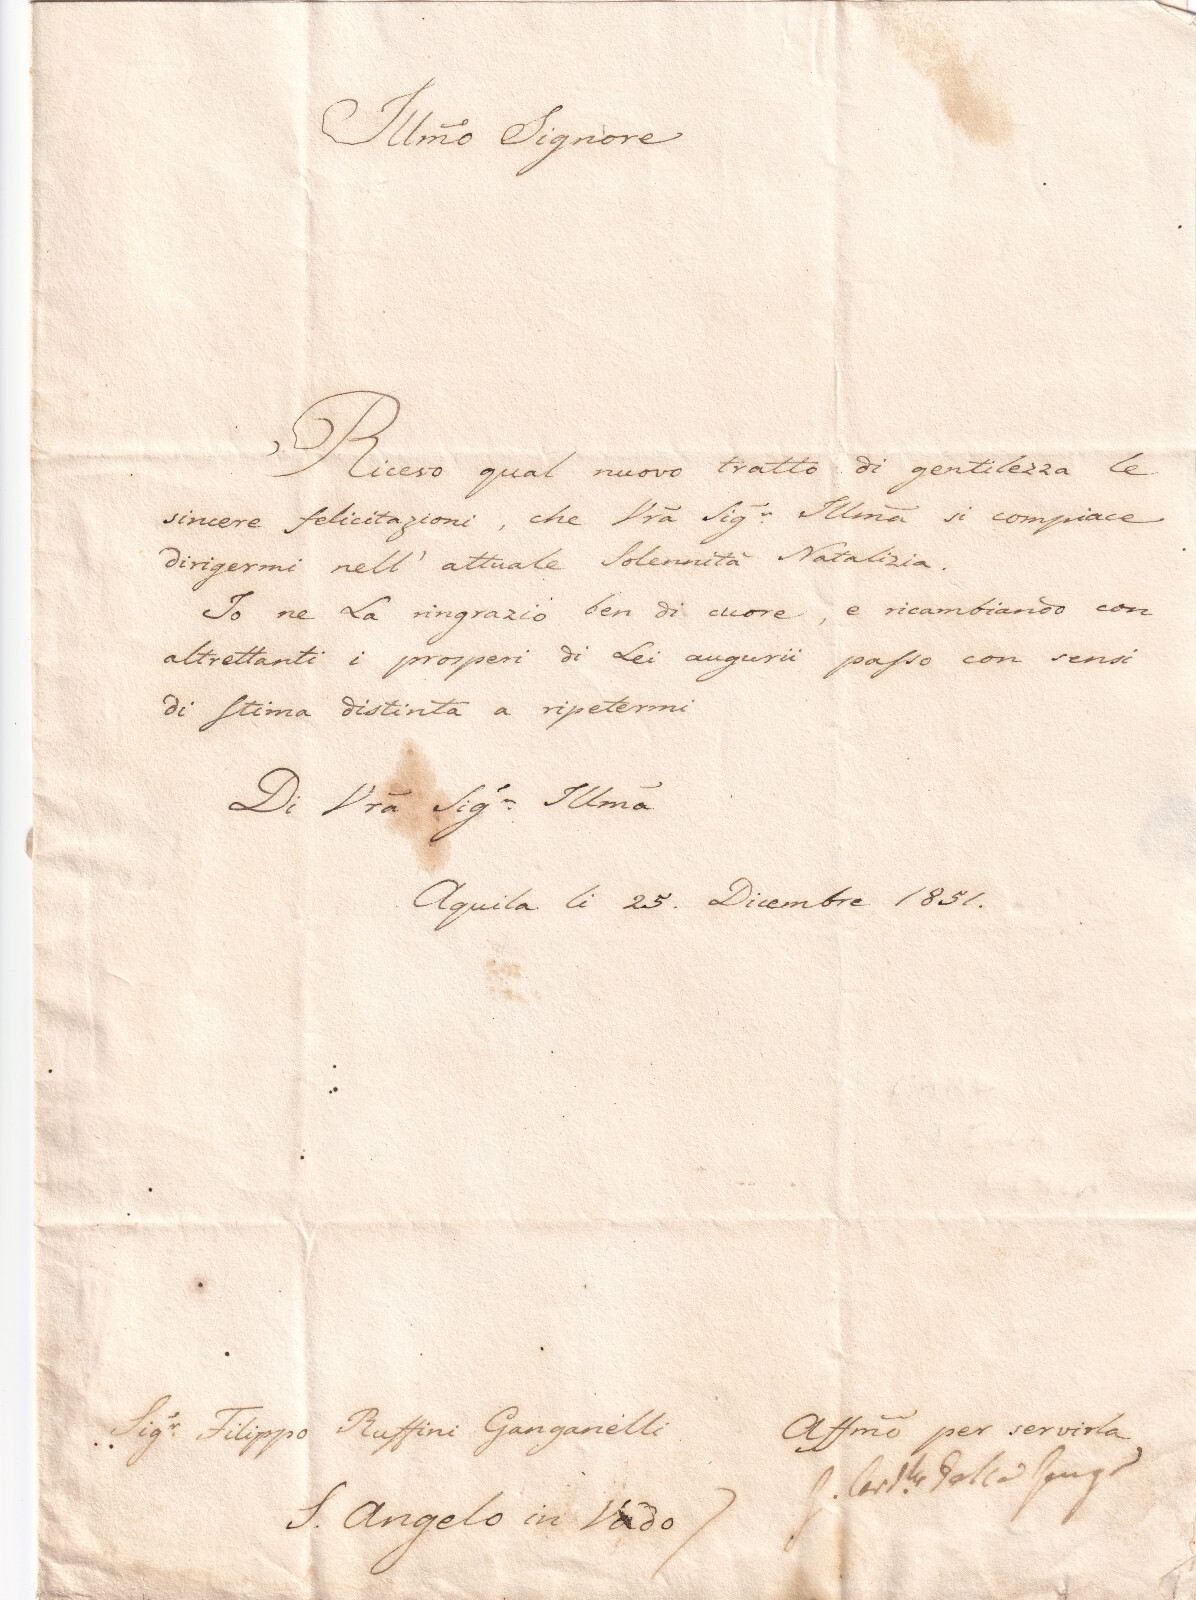 Illm̃o Signore
Ricevo qual nuovo tratto di gentilezza le
sincere felicitazioni, che Vrã Sig.ª Illmã si compiace
dirigermi nell' attuale Solennità Natalizia.
Io ne La ringrazio ben di cuore, e ricambiando con
altrettanti i prosperi di Lei augurii passo con sensi
di stima distinta a ripetermi
Di Vrã Sig.ª Illmã
Aquila li 25. Dicembre 1851.
Sig.r Filippo Ruffini Ganganelli
S. Angelo in Vado
Affm̃o per servirla
G. Card.le Della Genga